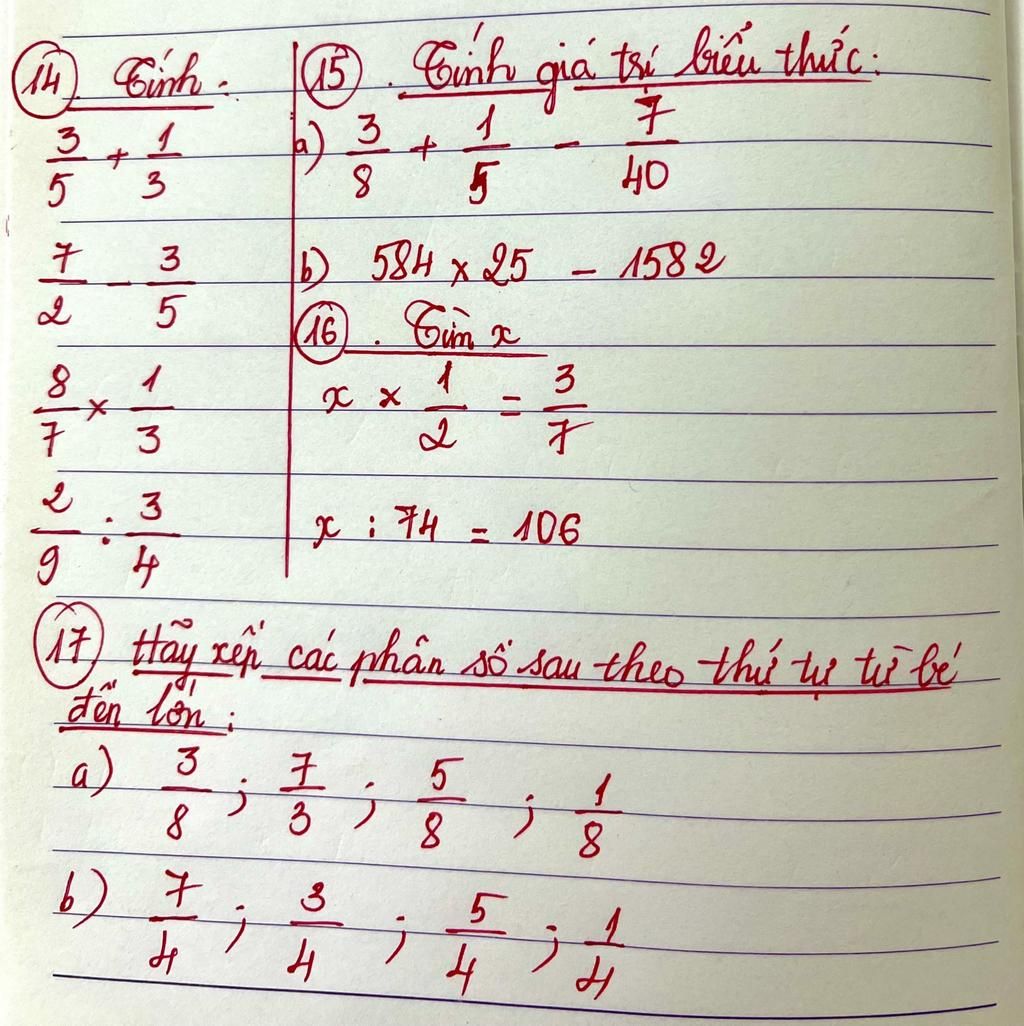 14. Tính:
3/5 + 1/3
7/2 - 3/5
8/7 × 1/3
2/9 : 3/4
15. Tính giá trị biểu thức:
a) 3/8 + 1/5 - 7/40
b) 584 × 25 - 1582
16. Tìm x
x × 1/2 = 3/7
x : 74 = 106
17 Hãy xếp các phân số sau theo thứ tự từ bé
đến lớn:
a) 3/8 ; 7/3 ; 5/8 ; 1/8
b) 7/4 ; 3/4 ; 5/4 ; 1/4